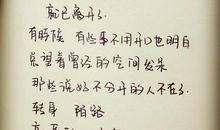 就已离开了.
有时候 有些事不用开口也明白
总望着曾经的空间发呆
那些说好不分开的人不在了.
转身 陌路